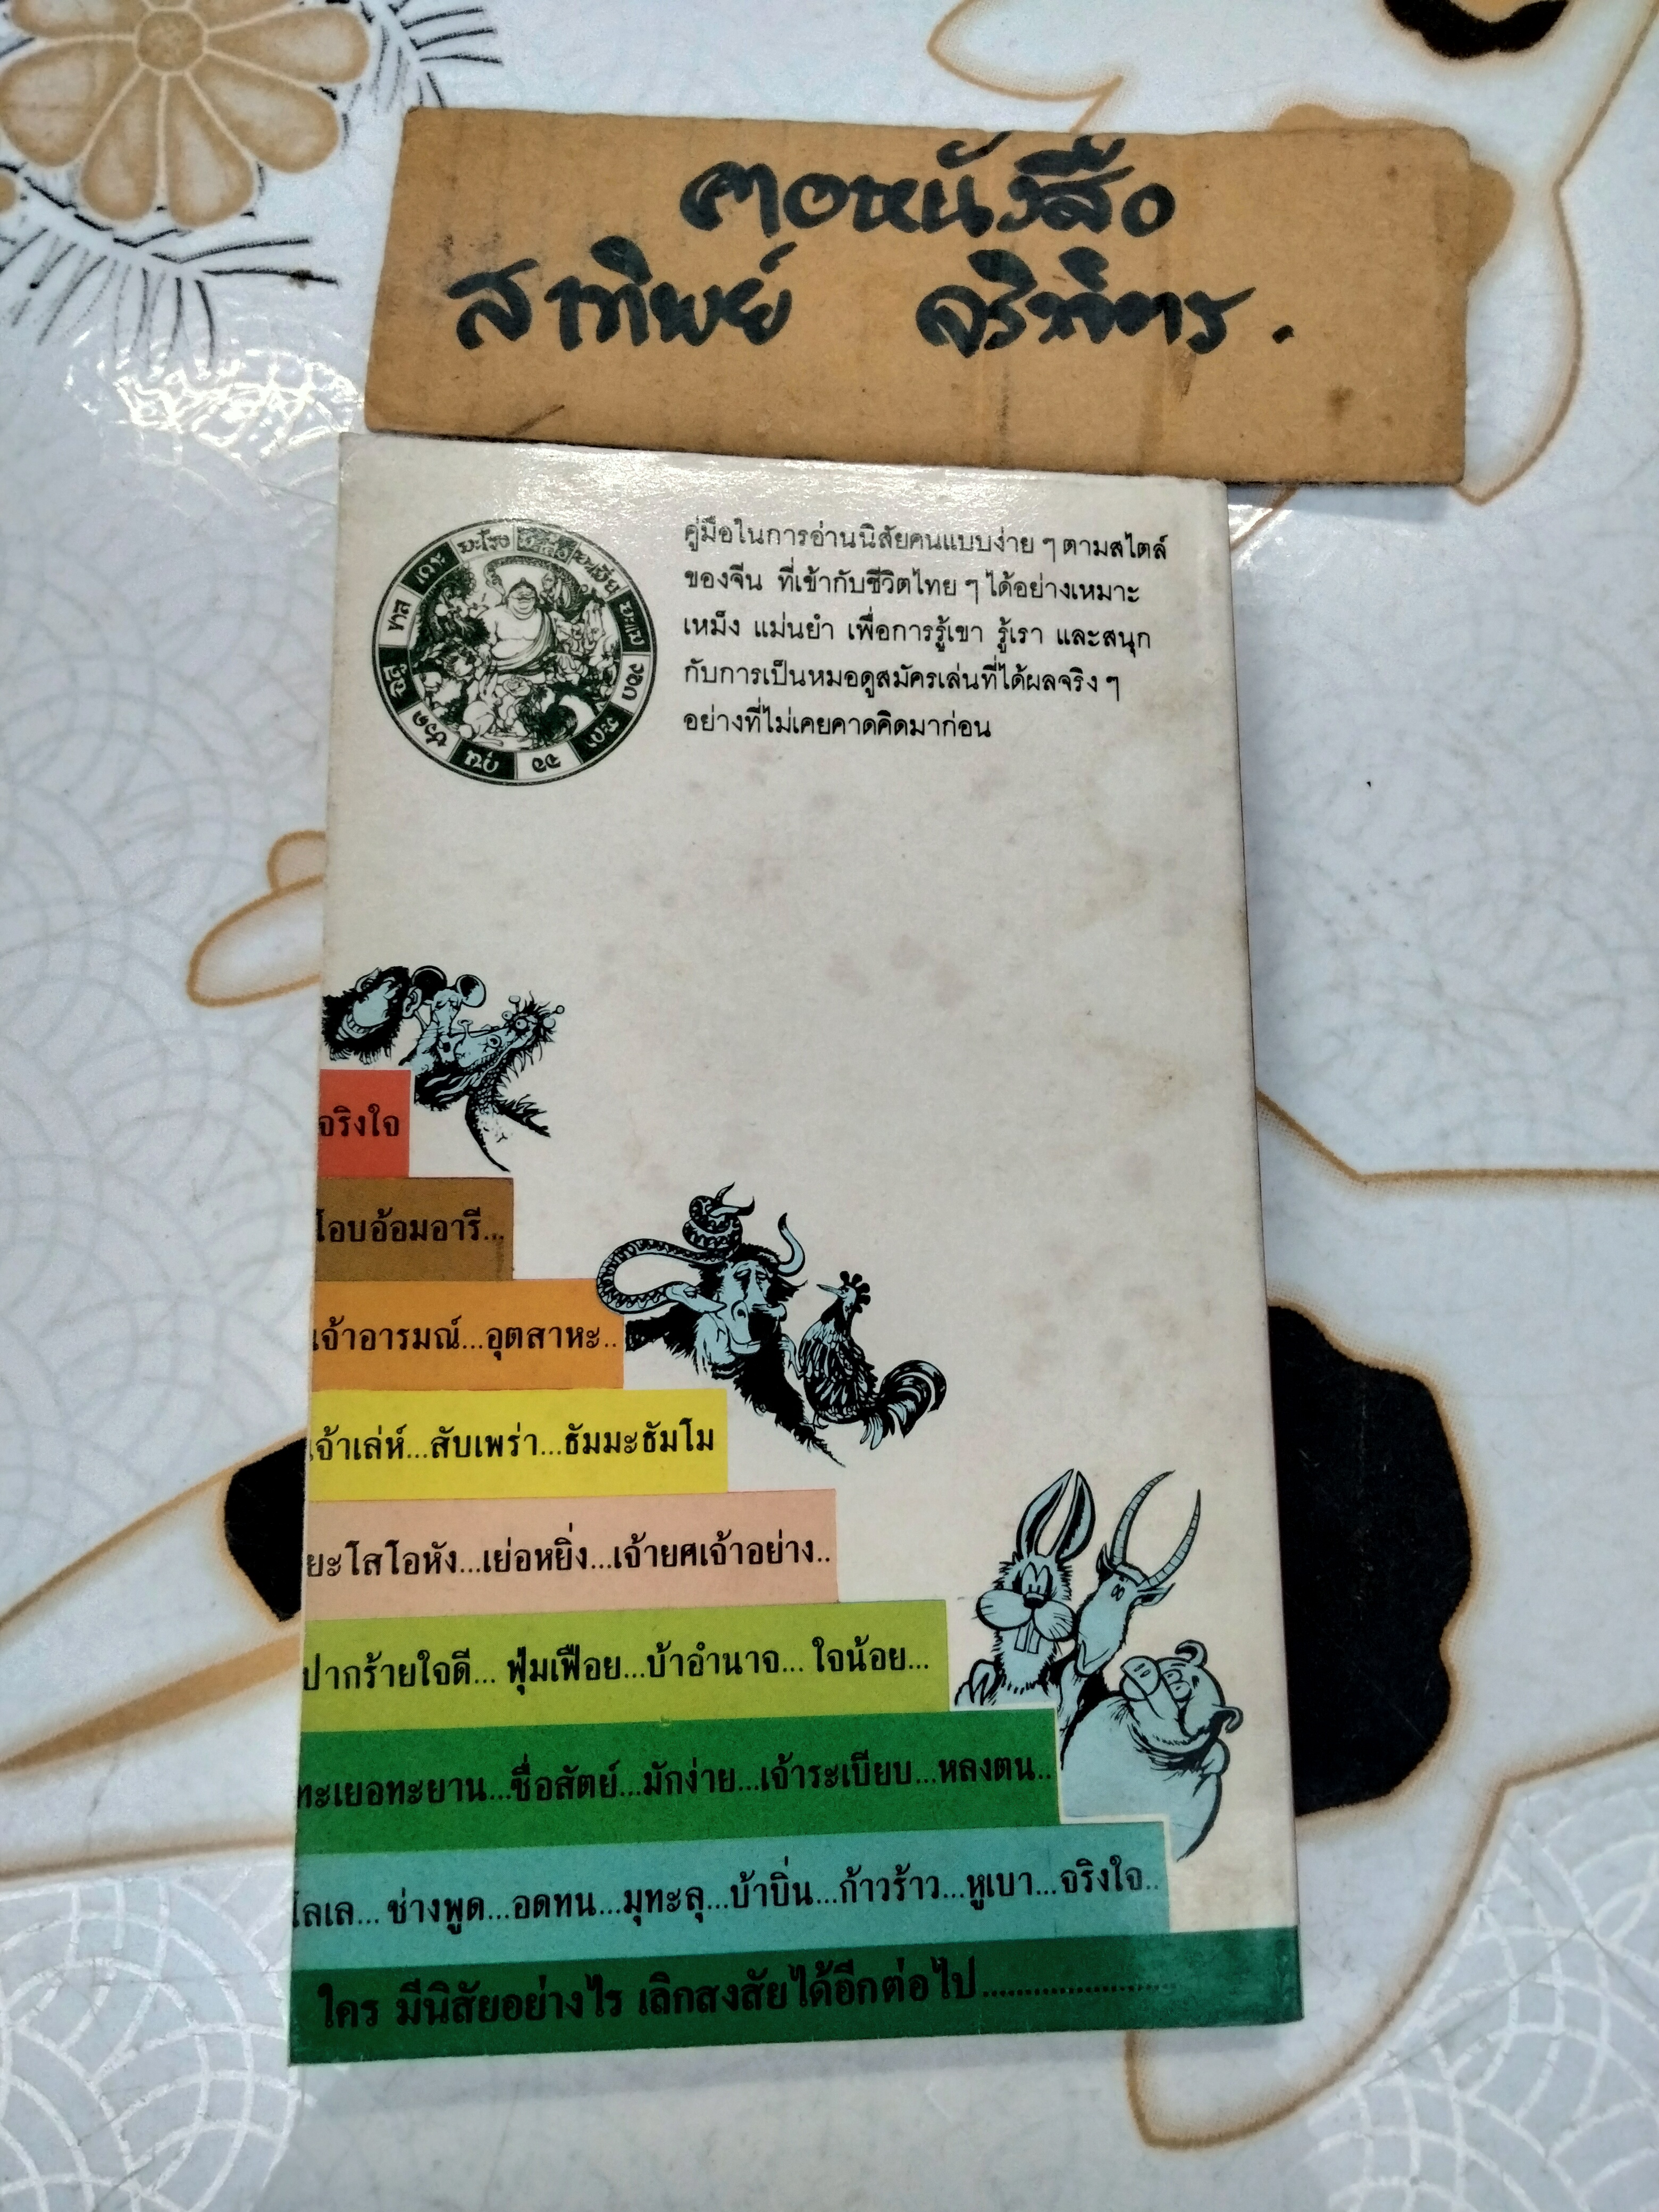 คอหนังสือ
สาทิพย์
มะโรง
มะเมีย
มะแม
วอก
ระกา
จอ
กุน
ชวด
ฉลู
ขาล
เถาะ
คู่มือในการอ่านนิสัยคนแบบง่าย ๆ ตามสไตล์
ของจีน ที่เข้ากับชีวิตไทย ๆ ได้อย่างเหมาะ
เหม็ง แม่นยำ เพื่อการรู้เขา รู้เรา และสนุก
กับการเป็นหมอดูสมัครเล่นที่ได้ผลจริง ๆ
อย่างที่ไม่เคยคาดคิดมาก่อน
จริงใจ
โอบอ้อมอารี...
เจ้าอารมณ์...อุตสาหะ..
เจ้าเล่ห์...สับเพร่า...ธัมมะธัมโม
ยะโสโอหัง...เย่อหยิ่ง...เจ้ายศเจ้าอย่าง..
ปากร้ายใจดี... ฟุ่มเฟือย...บ้าอำนาจ... ใจน้อย...
ทะเยอทะยาน...ซื่อสัตย์...มักง่าย...เจ้าระเบียบ...หลงตน..
โลเล... ช่างพูด...อดทน...มุทะลุ...บ้าบิ่น...ก้าวร้าว...หูเบา...จริงใจ..
ใคร มีนิสัยอย่างไร เลิกสงสัยได้อีกต่อไป......................